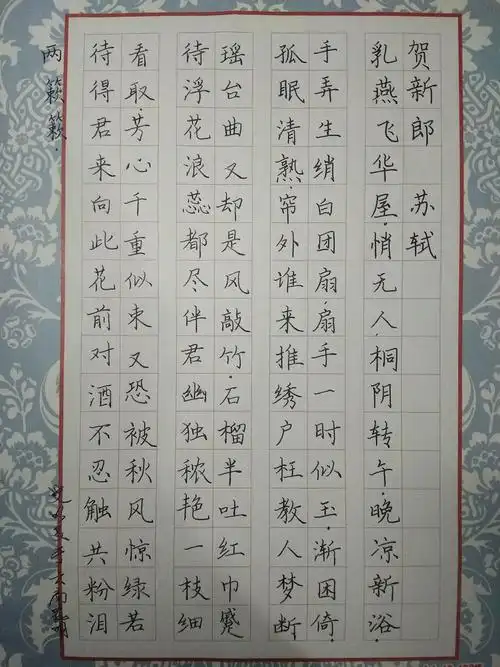 贺新郎 苏轼
乳燕飞华屋，悄无人，桐阴转午，晚凉新浴，
手弄生绡白团扇，扇手一时似玉，渐困倚，
孤眠清熟，帘外谁来推绣户枉教人梦断
瑶台曲又却是风敲竹，石榴半吐红巾蹙
待浮花浪蕊都尽伴君幽独秾艳一枝细
看取，芳心千重似束又恐被秋风惊绿若
待得君来向此花前对酒不忍触共粉泪
两簌簌，